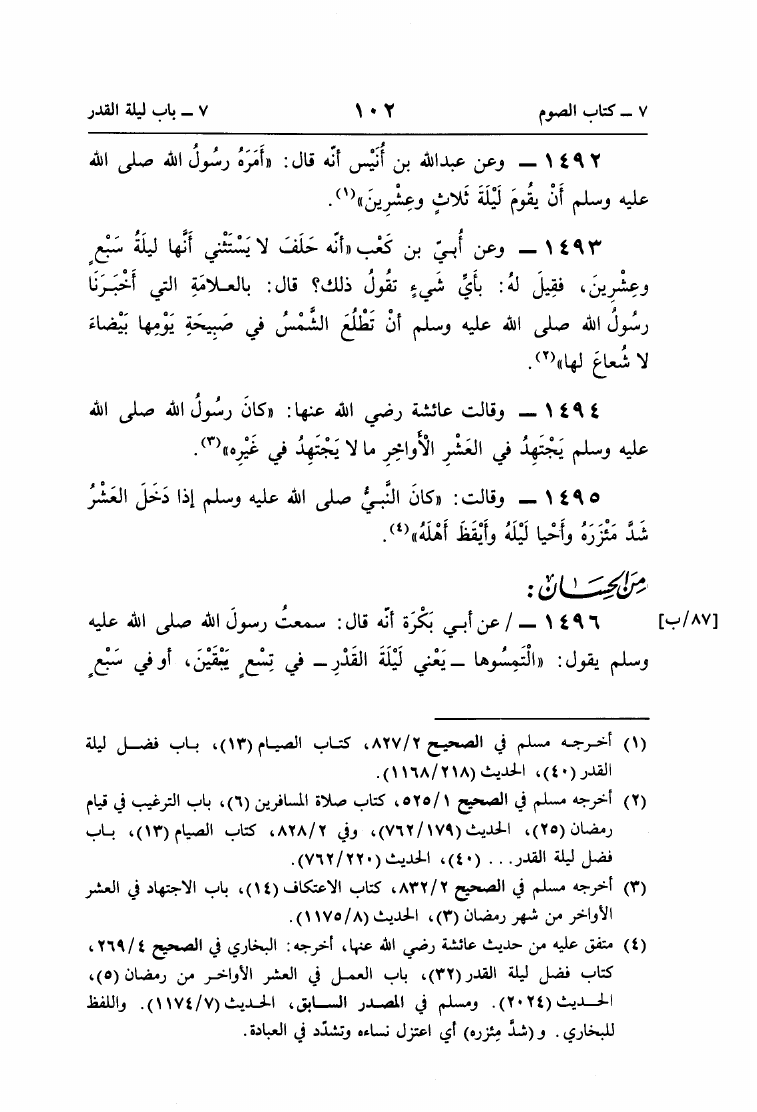 ٧ ـ كتاب الصوم ١٠٢ ٧ ـ باب ليلة القدر
١٤٩٢ ـ وعن عبدالله بن أُنَيْس أنّه قال: «أَمَرَهُ رسُولُ الله صلى الله
عليه وسلم أَنْ يقُومَ لَيْلَةَ ثَلاثٍ وعِشْرِينَ»(١).
١٤٩٣ ـ وعن أُبيّ بن كَعْب «أنّه حَلَفَ لا يَسْتَثْني أَنَّها ليلةُ سَبْعٍ
وعِشْرِينَ، فقِيلَ لهُ: بأَيِّ شَيءٍ تقُولُ ذلك؟ قال: بالعـلامَةِ التي أَخْبَـرَنَا
رسُولُ الله صلى الله عليه وسلم أنْ تَطْلُعَ الشَّمْسُ في صَبِيحَةِ يَوْمِها بَيْضاءَ
لا شُعاعَ لها»(٢).
١٤٩٤ ـ وقالت عائشة رضي الله عنها: «كانَ رسُولُ الله صلى الله
عليه وسلم يَجْتَهِدُ في العَشْرِ الْأَواخِرِ ما لا يَجْتَهِدُ في غَيْرِه»(٣).
١٤٩٥ ـ وقالت: «كانَ النَّبيُّ صلى الله عليه وسلم إذا دَخَلَ العَشْرُ
شَدَّ مَئْزَرَهُ وأَحْيا لَيْلَهُ وأَيْقَظَ أَهْلَهُ»(٤).
مِنَ الحِسَان:
١٤٩٦ ـ / عن أبـي بَكْرَة أنّه قال: سمعتُ رسولَ الله صلى الله عليه [٨٧/ب]
وسلم يقول: «الْتَمِسُوها ـ يَعْني لَيْلَةَ القَدْرِ ـ في تِسْعٍ يَبْقَيْنَ، أو في سَبْعٍ
(١) أخرجه مسلم في الصحيح ٨٢٧/٢، كتاب الصيام (١٣)، باب فضل ليلة
القدر (٤٠)، الحديث (١١٦٨/٢١٨).
(٢) أخرجه مسلم في الصحيح ٥٢٥/١، كتاب صلاة المسافرين (٦)، باب الترغيب في قيام
رمضان (٢٥)، الحديث (٧٦٢/١٧٩)، وفي ٨٢٨/٢، كتاب الصيام (١٣)، باب
فضل ليلة القدر... (٤٠)، الحديث (٧٦٢/٢٢٠).
(٣) أخرجه مسلم في الصحيح ٨٣٢/٢، كتاب الاعتكاف (١٤)، باب الاجتهاد في العشر
الأواخر من شهر رمضان (٣)، الحديث (١١٧٥/٨).
(٤) متفق عليه من حديث عائشة رضي الله عنها، أخرجه: البخاري في الصحيح ٢٦٩/٤،
كتاب فضل ليلة القدر (٣٢)، باب العمل في العشر الأواخر من رمضان (٥)،
الحديث (٢٠٢٤). ومسلم في المصدر السابق، الحديث (١١٧٤/٧). واللفظ
للبخاري. و (شدَّ مِئزره) أي اعتزل نساءه وتشدّد في العبادة.